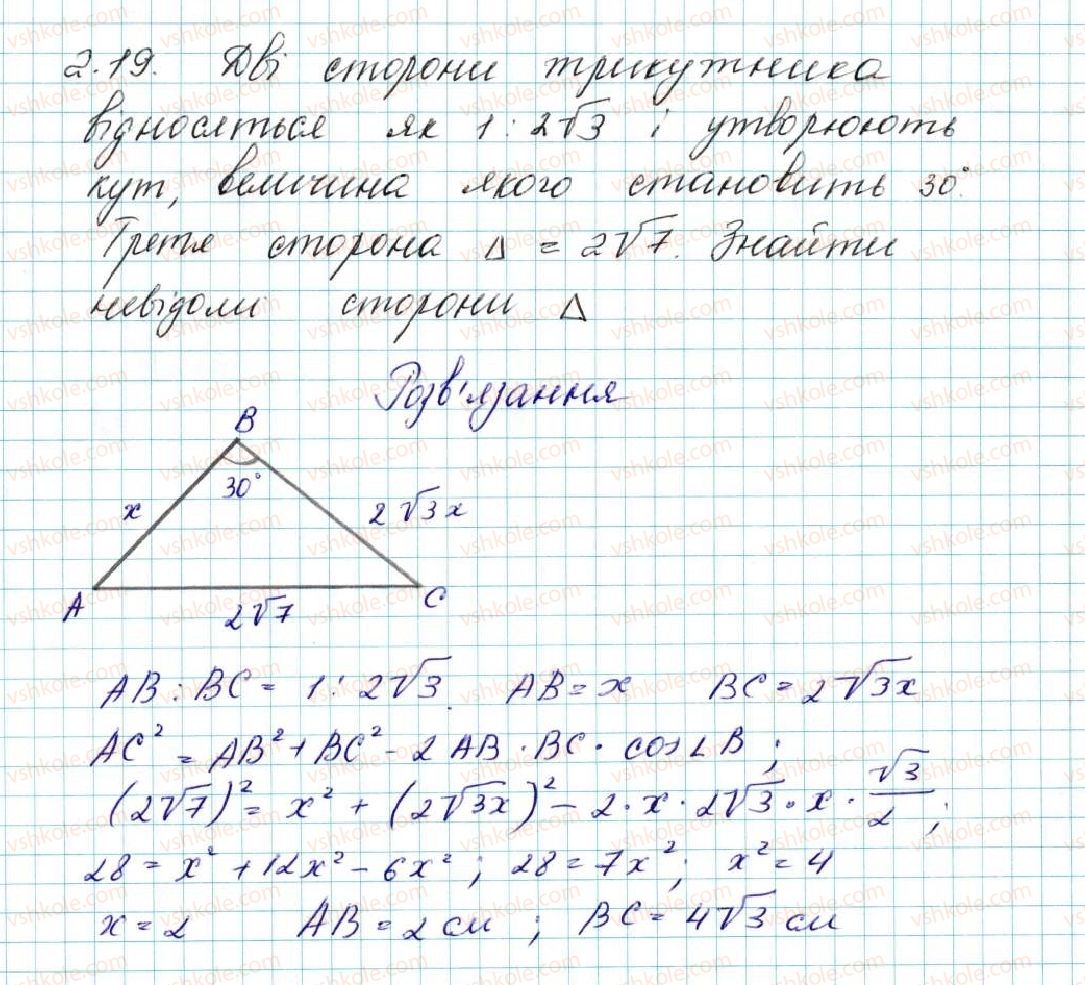 2.19. Дві сторони трикутника
відносяться як 1 : 2√3 і утворюють
кут, величина якого становить 30°.
Третя сторона Δ = 2√7. Знайти
невідомі сторони Δ
Розв'язання
B
30°
x
2√3x
A
C
2√7
AB : BC = 1 : 2√3. AB = x BC = 2√3x
AC² = AB² + BC² - 2 AB · BC · cos∠B ;
(2√7)² = x² + (2√3x)² - 2 · x · 2√3 · x · √3/2 ;
28 = x² + 12x² - 6x² ; 28 = 7x² ; x² = 4
x = 2 AB = 2 см ; BC = 4√3 см